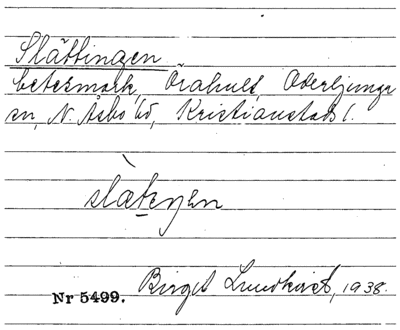 Slättingen
betesmark, Örahult, Oderljunga
sn, N. Åsbo hd, Kristianstads l.
Nr 5499. Birget Lundkvist, 1938.